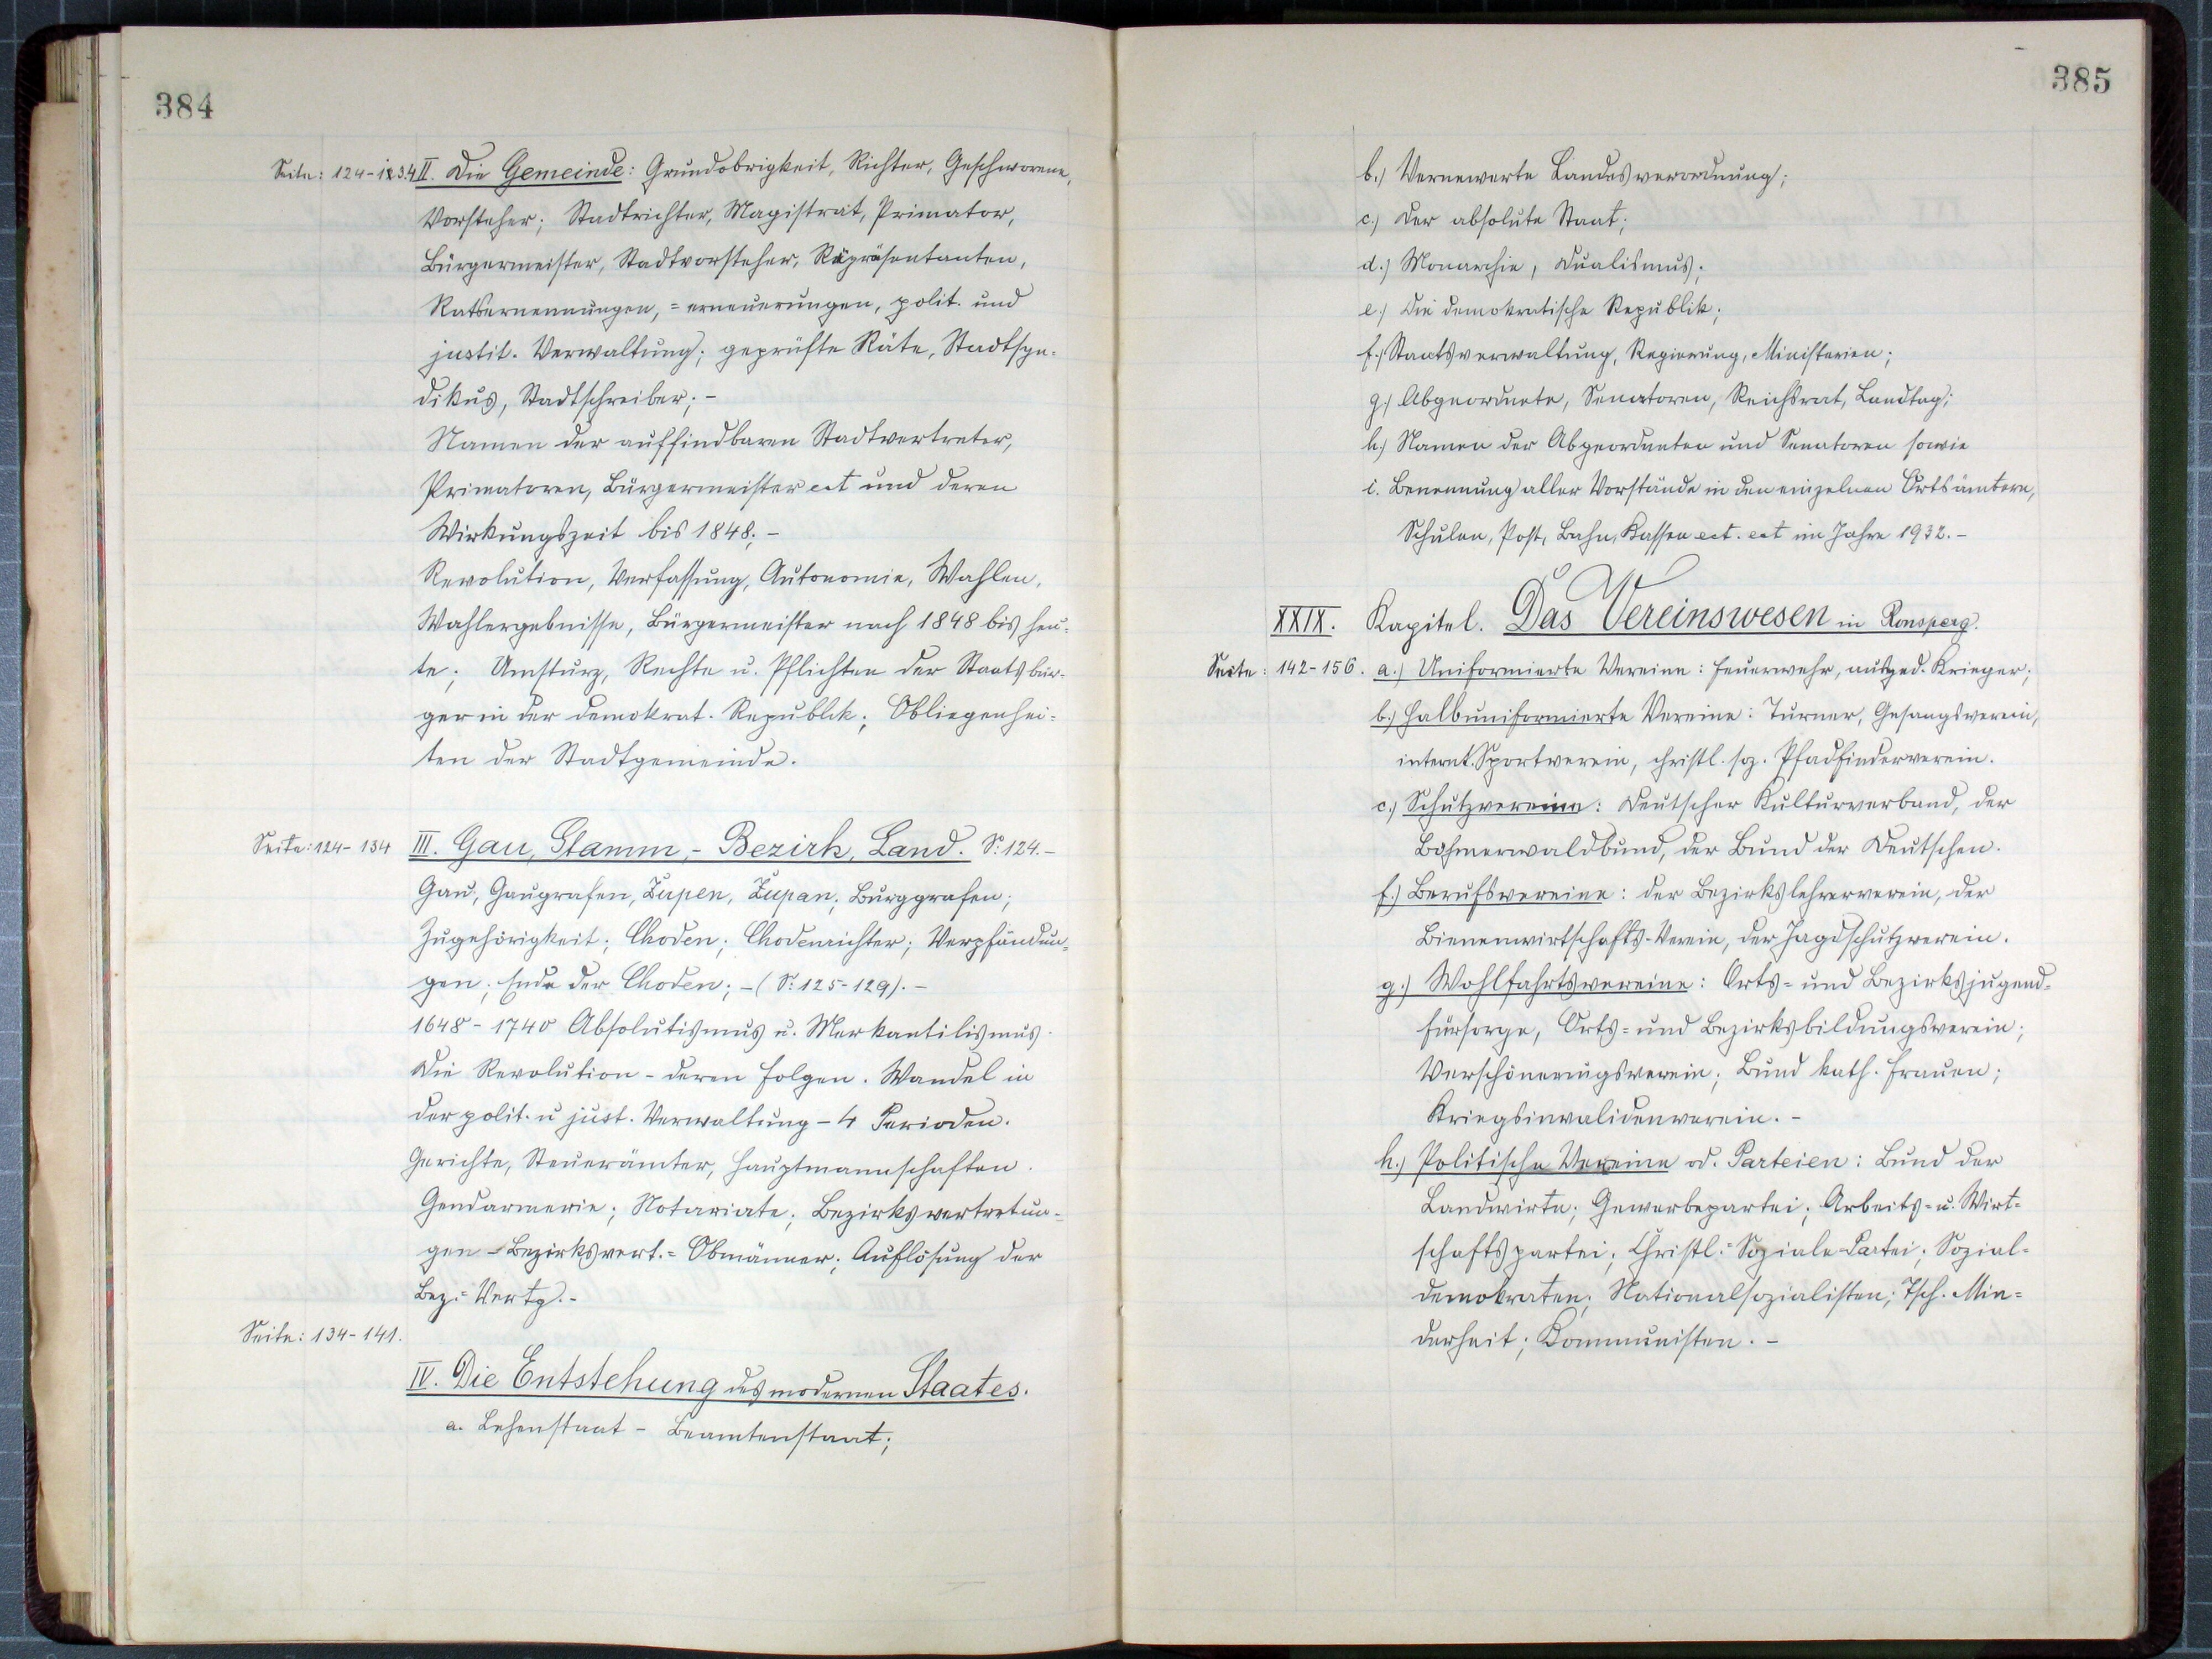 384
Seite: 124-1234 II. Die Gemeinde: Grundobrigkeit, Richter, Geschworene,
Vorsteher; Stadtrichter, Magistrat, Primator,
Bürgermeister, Stadtvorsteher, Räpräsentanten,
Ratsernennungen, =erneuerungen, polit. und
justit. Verwaltung; geprüfte Räte, Stadtsyn=
dikus, Stadtschreiber; -
Namen der auffindbaren Stadtvertreter,
Primatoren, Bürgermeister ect und deren
Wirkungszeit bis 1848; -
Revolution, Verfassung, Autonomie, Wahlen,
Wahlergebnisse, Bürgermeister nach 1848 bis heu=
te; Umsturz, Rechte u. Pflichten der Staatsbür=
ger in der demokrat. Republik; Obliegenhei=
ten der Stadtgemeinde.
Seite: 124-134 III. Gau, Stamm,- Bezirk, Land. S. 124.-
Gau, Gaugrafen, Župen, Župan; Burggrafen;
Zugehörigkeit; Choden; Chodenrichter; Verpfändun=
gen; Ende der Choden; -(S. 125-129).-
1648-1740 Absolutismus u. Merkantilismus.
Die Revolution - deren Folgen. Wandel in
der polit. u just. Verwaltung - 4 Perioden.
Gerichte, Steuerämter, Hauptmannschaften.
Gendarmerie; Notariate; Bezirksvertretun=
gen - Bezirksvert.= Obmänner; Auflösung der
Bez.= Vertg.-
Seite: 134-141.
IV. Die Entstehung des modernen Staates.
a. Lehenstaat - Beamtenstaat;
385
b.) Vernewerte Landesverordnung;
c.) Der absolute Staat;
d.) Monarchie, Dualismus;
e.) Die demokratische Republik;
f.) Staatsverwaltung, Regierung, Ministerien;
g.) Abgeordnete, Senatoren, Reichsrat, Landtag;
h.) Namen der Abgeordneten und Senatoren sowie
i. Benennung aller Vorstände in den einzelnen Ortsämtern,
Schulen, Post, Bahn, Kassen ect. ect im Jahre 1932.-
XXIX. Kapitel. Das Vereinswesen in Ronsperg.
Seite: 142-156. a.) Uniformierte Vereine: Feuerwehr, ausged. Krieger;
b.) Halbuniformierte Vereine: Turner, Gesangsverein,
internt. Sportverein, christl. soz. Pfadfinderverein.
c.) Schutzvereine: Deutscher Kulturverband, der
Böhmerwaldbund, der Bund der Deutschen.
f.) Berufsvereine: der Bezirkslehrerverein, der
Bienenwirtschafts-Verein, der Jagdschutzverein.
g.) Wohlfahrtsvereine: Orts= und Bezirksjugend=
fürsorge, Orts= und Bezirksbildungsverein;
Verschönerungsverein; Bund kath. Frauen;
Kriegsinvalidenverein. -
h.) Politische Vereine od. Parteien: Bund der
Landwirte; Gewerbepartei; Arbeits= u. Wirt=
schaftspartei; Christl.= Soziale Partei; Sozial=
demokraten; Nationalsozialisten; Tsch. Min=
derheit; Kommunisten. -